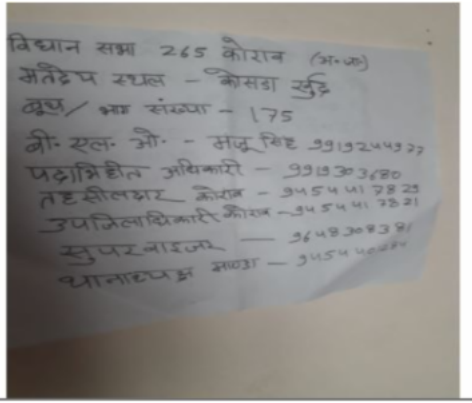 विधान सभा 265 कोराव (अ॰जा॰)
मतदेय स्थल - कोसडा खुर्द
बूथ/ भाग संख्या - 175
बी॰ एल॰ ओ॰ - मंजू सिंह 9919244977
पदाभिहीत अधिकारी - 9919303680
तहसीलदार कोराव - 9454417829
उपजिलाधिकारी कोराव - 9454417821
सुपरवाइजर - 9648308381
थानाध्यक्ष माण्डा -